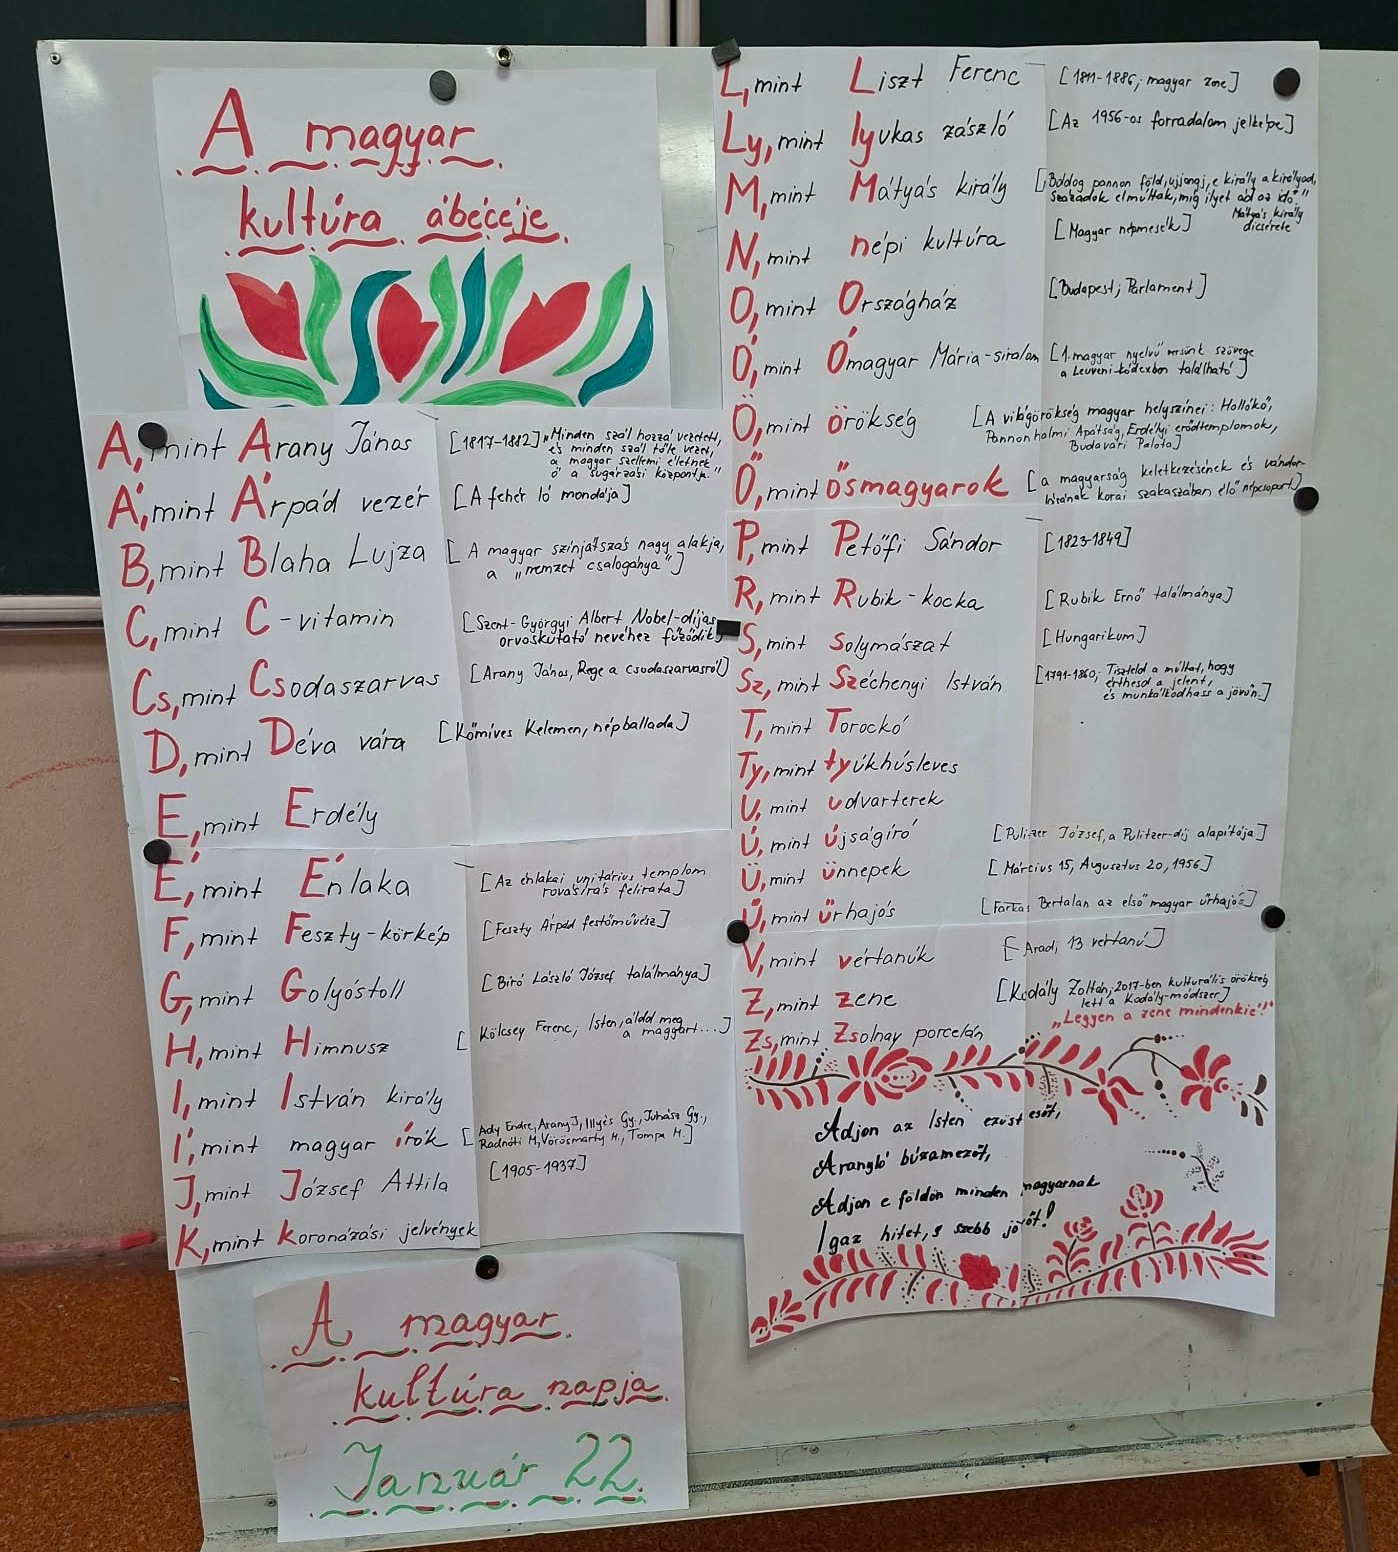 A magyar
kultúra ábécéje
A, mint Arany János [1817-1882] „Minden szál hozzá vezetett,
és minden szál tőle vezet,
a magyar szellemi életnek
ő a sugárzási központja."
Á, mint Árpád vezér [A fehér ló mondája]
B, mint Blaha Lujza [A magyar színjátszás nagy alakja,
a „nemzet csalogánya"]
C, mint C-vitamin [Szent-Györgyi Albert Nobel-díjas
orvoskutató nevéhez fűződik]
Cs, mint Csodaszarvas [Arany János, Rege a csodaszarvasról]
D, mint Déva vára [Kőmíves Kelemen, népballada]
E, mint Erdély
É, mint Énlaka [Az énlakai unitárius templom
rovásírás felirata]
F, mint Feszty-körkép [Feszty Árpád festőművész]
G, mint Golyóstoll [Bíró László József találmánya]
H, mint Himnusz [Kölcsey Ferenc; Isten, áldd meg
a magyart...]
I, mint István király
Í, mint magyar írók [Ady Endre, Arany J, Illyés Gy., Juhász Gy.,
Radnóti M, Vörösmarty M., Tompa M.]
J, mint József Attila [1905-1937]
K, mint koronázási jelvények
A magyar
kultúra napja
Január 22.
L, mint Liszt Ferenc [1811-1886; magyar zene]
Ly, mint lyukas zászló [Az 1956-os forradalom jelképe]
M, mint Mátyás király [„Boldog pannon föld, ujjongj, e király a királyod,
Századok elmúltak, míg ilyet ád az idő."
Mátyás király
dicsérete
N, mint népi kultúra [Magyar népmesék]
O, mint Országház [Budapest; Parlament]
Ó, mint Ómagyar Mária-siralom [1. magyar nyelvű versünk szövege
a Leuveni-kódexben található]
Ö, mint örökség [A világörökség magyar helyszínei: Hollókő,
Pannonhalmi Apátság, Erdélyi erődtemplomok,
Budavári Palota]
Ő, mint ősmagyarok [a magyarság keletkezésének és vándor-
lásának korai szakaszában élő népcsoport]
P, mint Petőfi Sándor [1823-1849]
R, mint Rubik-kocka [Rubik Ernő találmánya]
S, mint solymászat [Hungarikum]
Sz, mint Széchenyi István [1791-1860; Tiszteld a múltat, hogy
érthesd a jelent,
és munkálkodhass a jövőn.]
T, mint Torockó
Ty, mint tyúkhúsleves
U, mint udvarterek
Ú, mint újságíró [Pulitzer József, a Pulitzer-díj alapítója]
Ü, mint ünnepek [Március 15, Augusztus 20, 1956]
Ű, mint űrhajós [Farkas Bertalan az első magyar űrhajós]
V, mint vértanúk [Aradi 13 vértanú]
Z, mint zene [Kodály Zoltán; 2017-ben kulturális örökség
lett a Kodály-módszer]
„Legyen a zene mindenkié!"
Zs, mint Zsolnay porcelán
Adjon az Isten ezüst esőt,
Arangló búzamezőt,
Adjon e földön minden magyarnak
Igaz hitet, s szebb jövőt!